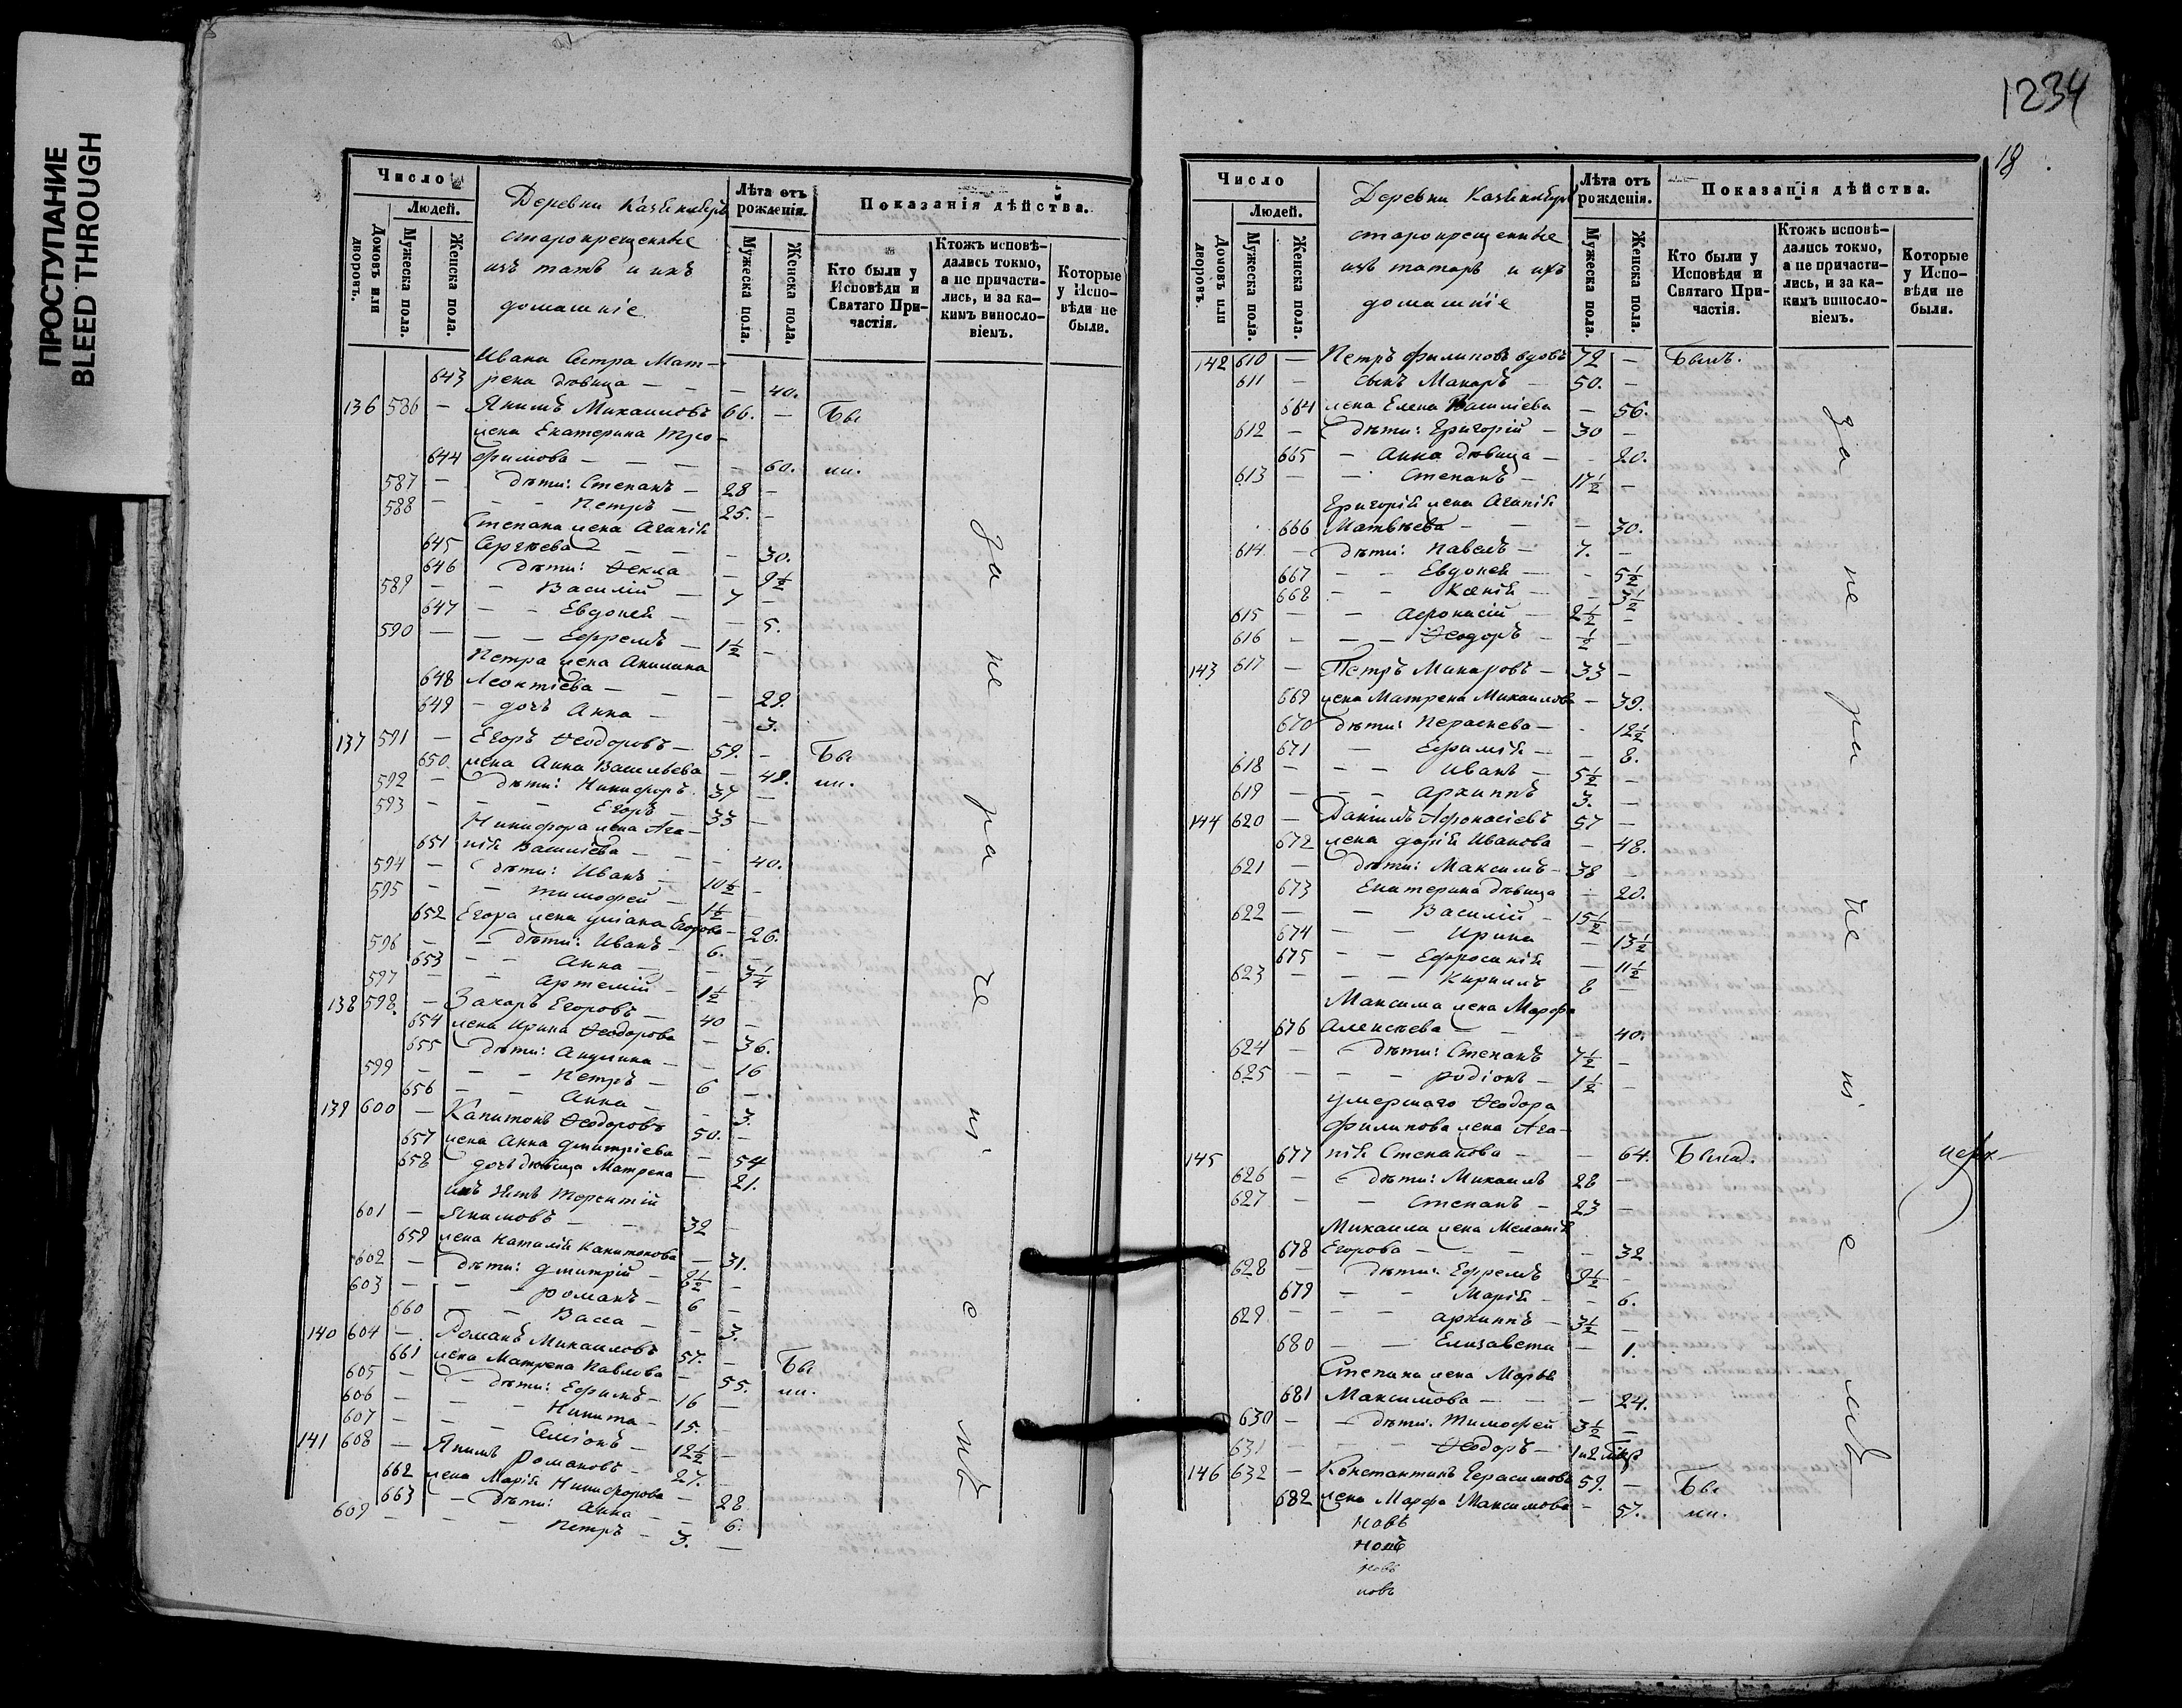 ПРОСТУПАНИЕ
BLEED THROUGH
1234
18
Число
Людей.
Домовъ или дворовъ.
Мужеска пола.
Женска пола.
Деревни
старокрещенные
изъ татъ и ихъ
домашніе
Лѣта отъ рожденія.
Мужеска пола.
Женска пола.
Показанія дѣйства.
Кто были у Исповѣди и Святаго Причастія.
Ктожъ исповѣдались токмо, а не причастились, и за какимъ винословіемъ.
Которые у Исповѣди не были.
Ивана Сестра Мат-
643 рена дѣвица — — — 40.
136 586 — Якимъ Михаиловъ 66. — Бы
жена Екатерина Тро-
644 фимова — — — — 60. ли.
587 — дѣти: Степанъ — 28 —
588 — — — Петръ — 25. —
Степана жена Агапія
645 Сергѣева — — — 30.
646 дѣти: Ѳекла — 9½
589 — — Василій — 7 —
647 — — Евдокея — — 5.
590 — — — Ефремъ — 1½ —
Петра жена Акилина
648 Леонтіева — — — 29.
649 — дочь Анна — — 3.
137 591 — Егоръ Ѳеодоровъ — 59. — Бы
650. жена Анна Васильева — 48. ли.
592 — дѣти: Никифоръ 37 —
593 — — — Егоръ — 33 —
Никифора жена Ага-
651 пія Васильева — — — 40.
594 — дѣти: Иванъ — 10½ —
595 — — Тимофей — 1½ —
652 Егора жена Уліана Егорова — 26.
596 — — дѣти: Иванъ — 6. —
653 — — Анна — — 3¼
597 — — Артемій — 1½ —
138 598. — Захаръ Егоровъ — 40 —
654 жена Ирина Ѳеодорова — 36.
655 дѣти: Акулина — — 16
599 — — — Петръ — 6 —
656 — — Анна — — 3.
139 600 — Капитонъ Ѳеодоровъ 50. —
657 жена Анна Дмитріева — 54
658 дочь дѣвица Матрена — 21.
ихъ зять Терентій
601 — Якимовъ — — 32 —
659 жена Наталія Капитонова — 31.
602 — дѣти: Дмитрій — 8½ —
603 — — — Романъ — 6 —
660 — — Васса — — 3.
140 604 — Романъ Михаиловъ 57. — Бы
661 жена Матрена Павлова — 55. ли.
605 — — дѣти: Ефимъ — 16 —
606 — — — Никита — 15. —
607 — — — Семіонъ — 12½ —
141 608 — Якимъ Романовъ — 27. —
662 жена Марія Никифорова — 28
663 — дѣти: Анна — — 6.
609 — — — Петръ — 3. —
за не ра че ні е мъ
Число
Людей.
Домовъ или дворовъ.
Мужеска пола.
Женска пола.
Деревни
старокрещенные
изъ татаръ и ихъ
домашніе
Лѣта отъ рожденія.
Мужеска пола.
Женска пола.
Показанія дѣйства.
Кто были у Исповѣди и Святаго Причастія.
Ктожъ исповѣдались токмо, а не причастились, и за какимъ винословіемъ.
Которые у Исповѣди не были.
142 610 — Петръ Филиповъ вдовъ 72 — Былъ.
611 — сынъ Макаръ — 50. —
664 жена Елена Василіева — 56.
612 — дѣти: Григорій — 30 —
665 — Анна дѣвица — — 20.
613 — — Степанъ — 17½ —
Григорія жена Агапія
666 Матвѣева — — — 30.
614 — дѣти: Павелъ — 7. —
667 — — Евдокея — — 5½
668 — — Ксенія — — 3½
615 — — Афонасій — 2½ —
616 — — — Ѳеодоръ — ½ —
143 617 — Петръ Макаровъ — 33 —
669 жена Матрена Михаилова — 39.
670 дѣти: Параскева — — 12½
671 — Ефимія — — 8.
618 — — — Иванъ — 5½ —
619 — — — Архиппъ 3. —
144 620 — Даніилъ Афонасіевъ 57 —
672 жена Дарія Иванова — 48.
621 — дѣти: Максимъ — 38 —
673 Екатерина дѣвица — 20.
622 — — Василій — 15½ —
674 — — Ирина — 13½
675 — — Ефросинія — 11½
623 — — — Кирилъ 8 —
Максима жена Марфа
676 Алексѣева — — — 40.
624 — — дѣти: Степанъ 7½ —
625 — — — Родіонъ — 1½ —
умершаго Ѳеодора
Филипова жена Ага-
145 677 пія Степанова — — 64. Была.
626 — дѣти: Михаилъ 28 —
627 — — Степанъ — 23 —
Михаила жена Меланія
678 Егорова — — — — 32
628 — дѣти: Ефремъ 9½ —
679 — — Марія — — 6.
629 — — — Архиппъ — 3½ —
680 — — Елизавета — 1.
Степана жена Марѳа
681 Максимова — — — 24.
630 — — дѣти: Тимофей 3½ —
631 — — — Ѳеодоръ —
146 632 — Константинъ Герасимовъ 59. — Бы
682 жена Марфа Максимова — 57. ли.
новъ
новъ
новъ
новъ
за не ра че ні е мъ